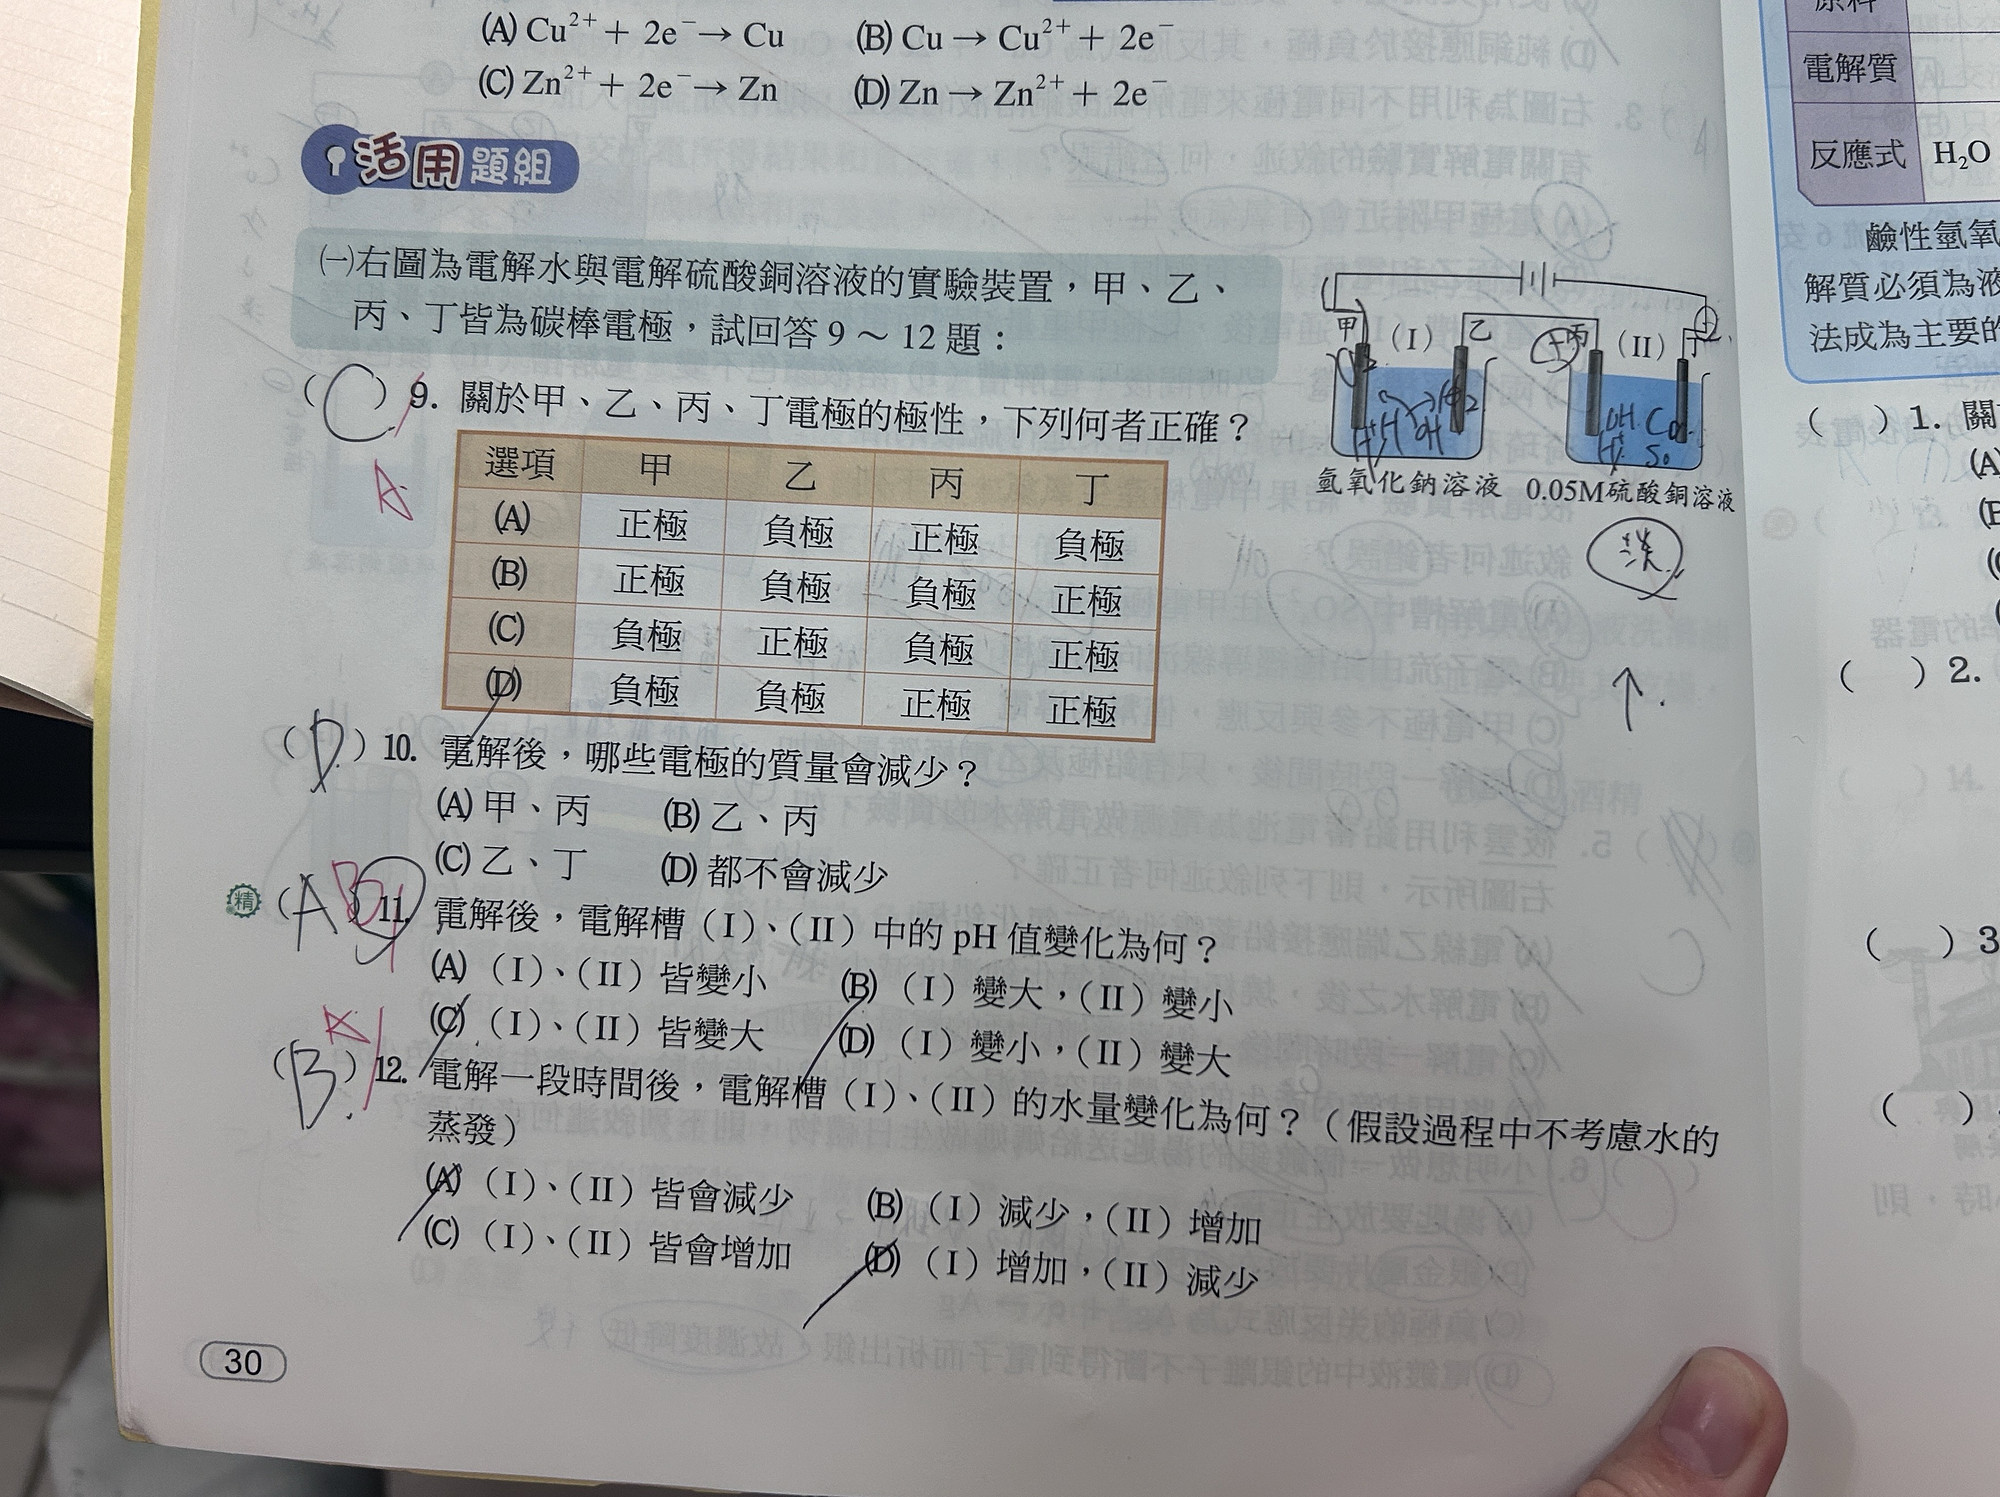 (A) Cu²⁺ + 2e⁻ → Cu (B) Cu → Cu²⁺ + 2e⁻
(C) Zn²⁺ + 2e⁻ → Zn (D) Zn → Zn²⁺ + 2e⁻
活用題組
㈠右圖為電解水與電解硫酸銅溶液的實驗裝置，甲、乙、
丙、丁皆為碳棒電極，試回答 9 ～ 12 題：
甲 (I) 乙 丙 (II) 丁
氫氧化鈉溶液 0.05M硫酸銅溶液
淡
(C) 9. 關於甲、乙、丙、丁電極的極性，下列何者正確？
A
選項 甲 乙 丙 丁
(A) 正極 負極 正極 負極
(B) 正極 負極 負極 正極
(C) 負極 正極 負極 正極
(D) 負極 負極 正極 正極
(D) 10. 電解後，哪些電極的質量會減少？
(A) 甲、丙 (B) 乙、丙
(C) 乙、丁 (D) 都不會減少
精 (A) B 11. 電解後，電解槽（I）、（II）中的 pH 值變化為何？
(A)（I）、（II）皆變小 (B)（I）變大，（II）變小
(C)（I）、（II）皆變大 (D)（I）變小，（II）變大
A
(B) 12. 電解一段時間後，電解槽（I）、（II）的水量變化為何？（假設過程中不考慮水的
蒸發）
(A)（I）、（II）皆會減少 (B)（I）減少，（II）增加
(C)（I）、（II）皆會增加 (D)（I）增加，（II）減少
30
原料
電解質
反應式 H₂O
鹼性氫氧
解質必須為液
法成為主要的
( ) 1. 關
(A)
( ) 2.
( ) 3